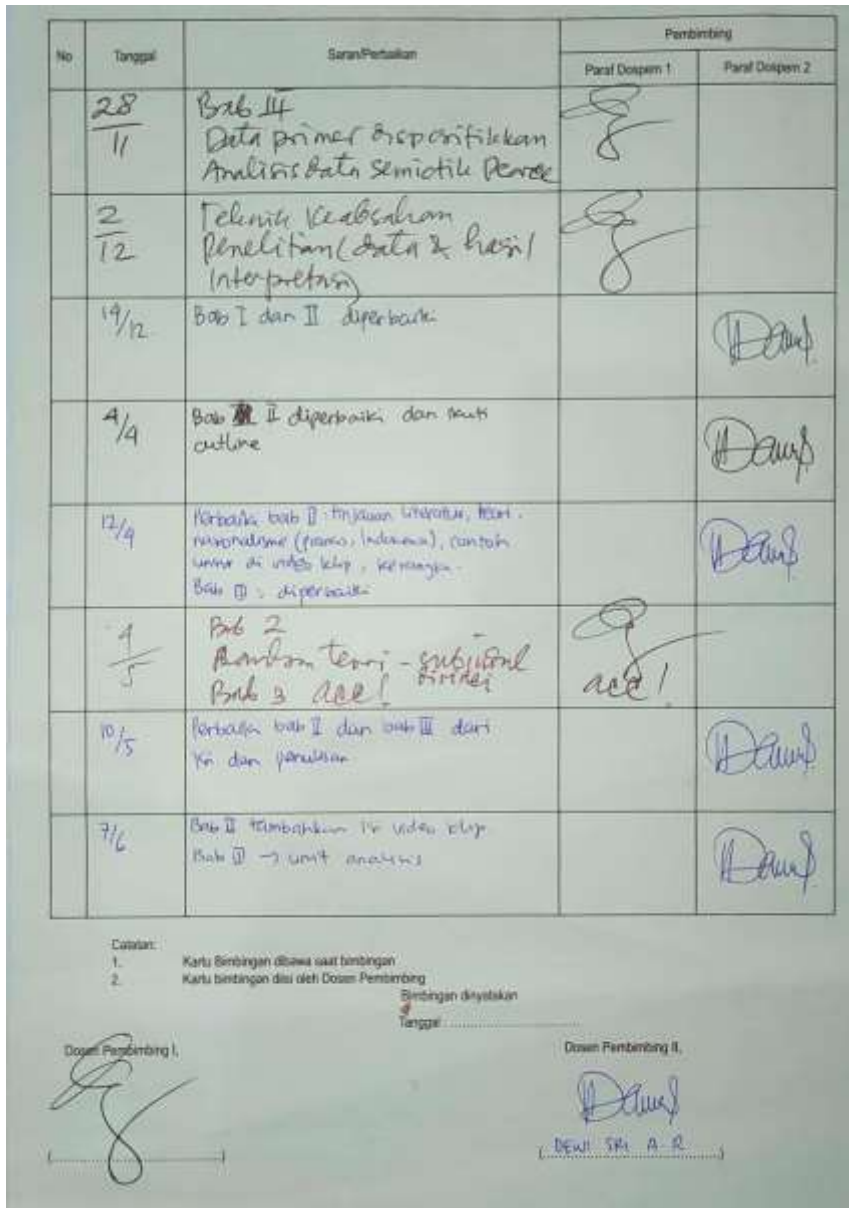 No Tanggal Saran/Perbaikan Pembimbing
Paraf Dospem 1 Paraf Dospem 2
28/11 Bab III
Data primer dispesifikkan
Analisis data Semiotik Peirce
2/12 Teknik Keabsahan
Penelitian (data & hasil
Interpretasi)
14/12 Bab I dan II diperbaiki
4/4 Bab II diperbaiki dan ikuti
outline
12/4 Perbaiki bab II : tinjauan literatur, teori
nasionalisme (, Indonesia), contoh
di video klip, kerangka.
Bab III : diperbaiki
4/5 Bab 2
teori -
Bab 3 acc!
acc!
10/5 Perbaiki bab II dan bab III dari
isi dan penulisan
7/6 Bab II tambahkan video klip
Bab III → unit analisis
Catatan:
1. Kartu Bimbingan dibawa saat bimbingan
2. Kartu bimbingan diisi oleh Dosen Pembimbing
Bimbingan dinyatakan
Tanggal
Dosen Pembimbing I, Dosen Pembimbing II,
DEWI SRI A R